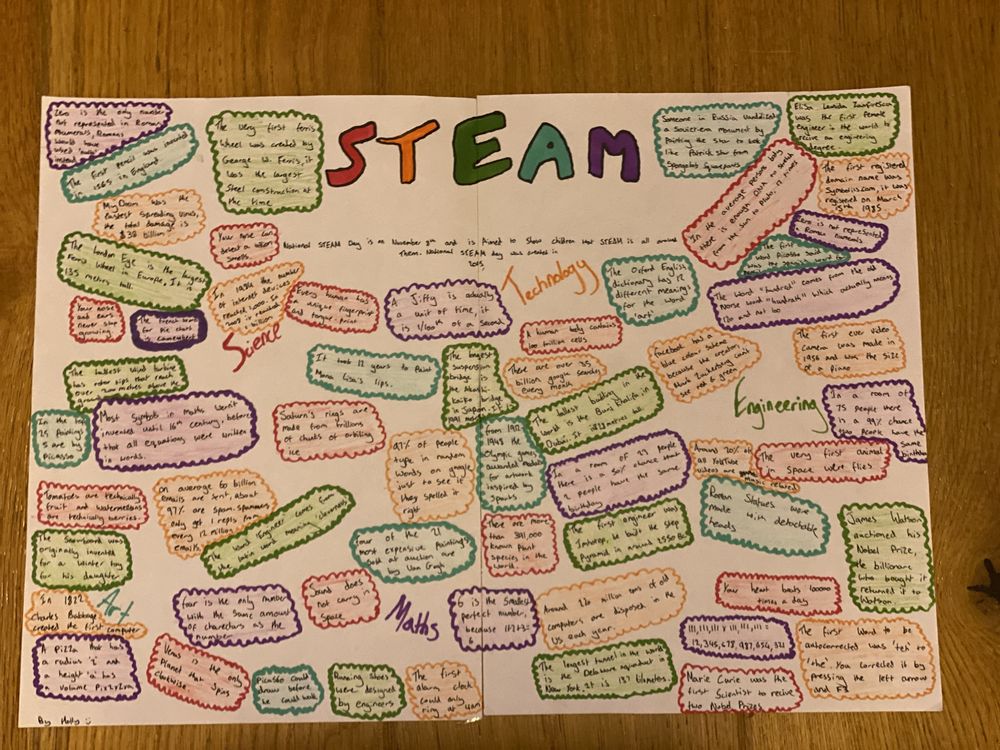 STEAM
Zero is the only number
not represented in Roman
Numerals, Romans
would have
used
instead
The first pencil was invented
in 1565 in England
The very first ferris
wheel was created by
George W. Ferris, it
was the largest
Steel construction at
the time
Someone in Russia vandalized
a Soviet-era monument by
painting the star to look
like Patrick Star from
Spongebob Squarepants
Elisa Leonida Zamfirescu
was the first female
engineer in the world to
receive an engineering
degree
MyDoom was the
fastest spreading virus,
the total damage is
$38 billion
Your nose can
detect a trillion
smells.
National STEAM Day is on November 8th and is Aimed to Show children that STEAM is all around
Them. National STEAM day was created in
2015
In the average persons body
there is enough DNA to stretch
from the Sun to Pluto, 17 times
The first registered
domain name was
Symbolics.com, it was
registered on March
15th 1985
Zero is not represented
in Roman Numerals
The first
word Picasso said
was the Spanish word for
The London Eye is the largest
Ferris wheel in Europe, It is
135 metres tall.
In 1984 the number
of internet devices
reached 1,000. In
2008 it reached
1 billion
Every human has
a unique fingerprint
and tongue print
A Jiffy is actually
a unit of time, it
is 1/100th of a second
Technology
The Oxford English
dictionary has 17
different meanings
for the word
'art'
The word "hundred" comes from the old
Norse word "hundrath" which actually means
120 and not 100
Your nose
and ears
never stop
growing
The French word
for pie chart
is camembert
Science
A human body contains
100 trillion cells
The first ever video
camera was made in
1956 and was the size
of a piano
The tallest wind turbine
has rotor tips that reach
over 200 metres above the
It took 12 years to Paint
Mona Lisa's lips.
The biggest
suspension
bridge is
the Akashi-
Kaikyo bridge
in Japan. It
1991 metres
There are over 35
billion google searches
every month
Facebook has a
blue colour scheme
because the creator,
Mark Zuckerberg can't
see red & green
Engineering
In the top
25 Paintings
5 are by
Picasso
Most symbols in maths weren't
invented until 16th century, before
that all equations were written
in words.
Saturn's rings are
made from trillions
of chunks of orbiting
ice
97% of people
type in random
words on google
just to see if
they spelled it
right
From 1912-
1948 the
Olympic games
awarded medals
for artwork
inspired by
Sports
The tallest building in the
world is the Burj Khalifa in
Dubai. It is 828 metres tall.
In a room of
75 people there
is a 99% chance
two people have the
same
birthday
In a room of 23 people
there is a 50% chance that
2 people have the same
birthday
Around 20% of
all YouTube
videos are music related
The very first animal
in space were flies
Tomatoes are technically
fruit and watermelons
are technically berries.
On average 60 billion
emails are sent, about
97% are spam. Spammers
only get 1 reply from
every 12 million
emails
The word Engineer comes from
the latin word meaning cleverness
four of the 23
most expensive paintings
sold at auction are
by Van Gogh
There are more
than 391,000
known plant
species in the
world.
The first engineer was
Imhotep, he built the step
pyramid in around 2550 BC
Roman Statues were
made with detachable
heads
James Watson
auctioned his
Nobel Prize,
the billionaire
who bought it
returned it to
Watson
The Snowboard was
originally invented
for a Winter toy
for his daughter
Art
In 1822
Charles Babbage
created the first computer
four is the only number
with the same amount
of characters as the
number
Sound does
not carry in
Space
Maths
6 is the smallest
perfect number,
because 1+2+3=
Around 120 million tons of old
computers are disposed in the
US each year.
Your heart beats 100000
times a day
111,111,111 x 111,111,111 =
12,345,678,987,654,321
The first word to be
autocorrected was 'teh' to
'the'. You corrected it by
pressing the left arrow
and F3
A Pizza that has
a radius 'z' and
a height 'a' has
Volume Pi×z×z×a
Venus is the only
Planet that spins
clockwise.
Picasso could
draw before
he could walk
Running shoes
were designed
by engineers
The first
alarm clock
could only
ring at 4am
The longest tunnel in the world
is the Delaware aqueduct in
New York. It is 137 kilometres.
Marie Curie was the
first Scientist to recive
two Nobel Prizes
By Holly